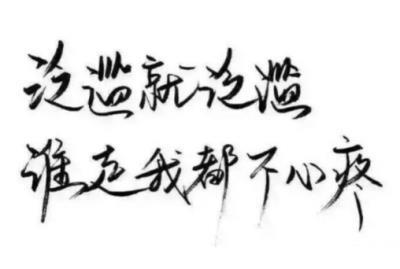 泛滥就泛滥
谁走我都不心疼